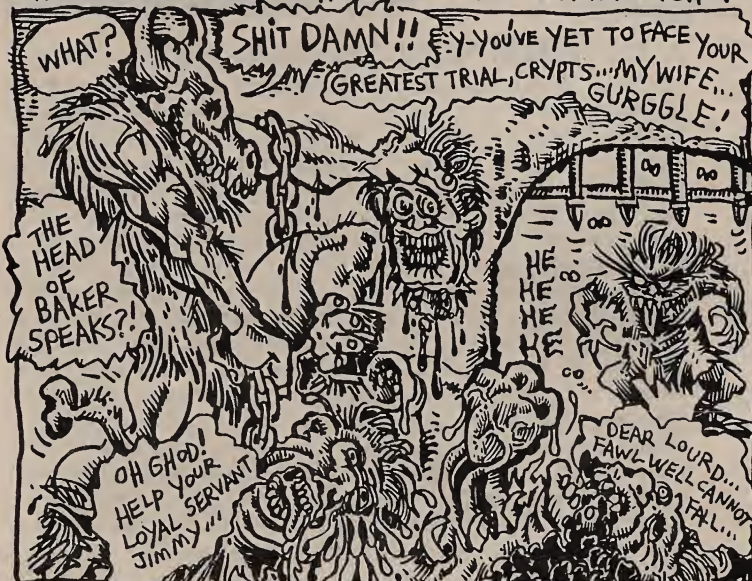 WHAT?
SHIT DAMN!!
Y-YOU'VE YET TO FACE YOUR
GREATEST TRIAL, CRYPTS...MY WIFE...
GURGGLE!
THE
HEAD
OF
BAKER
SPEAKS?!
HE
HE
HE
HE
OH GHOD!
HELP YOUR
LOYAL SERVANT
JIMMY...
DEAR LOURD...
FAWL WELL CANNOT
FALL...